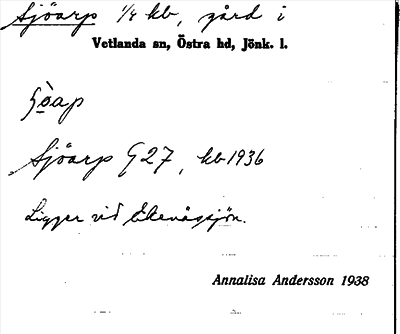 Sjöarp 1/4 kb, gård i
Vetlanda sn, Östra hd, Jönk. l.
Sjöarp G 27, kb 1936
Ligger vid Ekenässjön.
Annalisa Andersson 1938